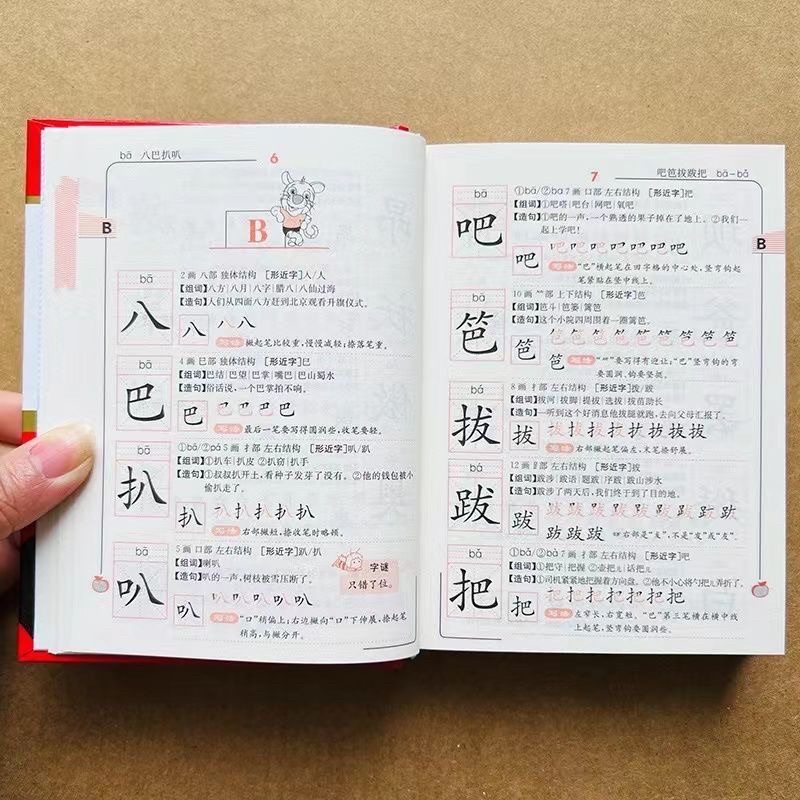 bā 八巴扒叭
6
B
B
bā
八
2 画 八部 独体结构 [形近字]人/入
【组词】八方|八月|八字|腊八|八仙过海
【造句】人们从四面八方赶到北京观看升旗仪式。
八 八八
写法 撇起笔比较重,慢慢减轻;捺落笔重。
bā
巴
4 画 巳部 独体结构 [形近字]巳
【组词】巴结|巴望|巴掌|嘴巴|巴山蜀水
【造句】俗话说,一个巴掌拍不响。
巴 巴巴巴巴
写法 最后一笔要写得圆润些,收笔要轻。
bā
扒
①bā/②pá 5 画 扌部 左右结构 [形近字]叭/趴
【组词】①扒车|扒皮 ②扒窃|扒手
【造句】①叔叔扒开土,看种子发芽了没有。②他的钱包被小
偷扒走了。
扒 扒扒扒扒扒
写法 右部撇短,捺收笔时略顿。
bā
叭
5 画 口部 左右结构 [形近字]趴/扒
【组词】喇叭
【造句】叭的一声,树枝被雪压断了。
字谜
只错了位。
叭 叭叭叭叭叭
写法 “口”稍偏上;右边撇向“口”下伸展,捺起笔
稍高,与撇分开。
7
吧笆拔跋把 bā-bǎ
B
bā
吧
①bā/②ba 7 画 口部 左右结构 [形近字]把
【组词】①吧嗒|吧台|网吧|氧吧
【造句】①吧的一声,一个熟透的果子掉在了地上。②我们一
起上学吧!
吧 吧吧吧吧吧吧吧
写法 “巴”横起笔在田字格的中心处,竖弯钩起
笔紧贴在竖中线上。
bā
笆
10 画 ⺮部 上下结构 [形近字]芭
【组词】笆斗|笆篓|篱笆
【造句】这个小院四周围着一圈篱笆。
笆 笆笆笆笆笆笆笆笆笆
笆 写法 “⺮”要写得有迎让;“巴”竖弯钩的弯
要圆润、钩要坚挺。
bá
拔
8 画 扌部 左右结构 [形近字]拨/跋
【组词】拔河|拔脚|提拔|选拔|拔苗助长
【造句】一听到这个好消息他拔腿就跑,去向父母汇报了。
拔 拔拔拔拔拔拔拔拔
写法 右部撇起笔偏左,末笔捺舒展。
bá
跋
12 画 ⻊部 左右结构 [形近字]拔
【组词】跋涉|跋语|题跋|序跋|跋山涉水
【造句】跋涉了两天后,我们终于到了目的地。
跋 跋跋跋跋跋跋跋跋跋
跋跋跋 右部是“犮”,不是“发”或“友”。
bǎ
把
①bǎ/②bà 7 画 扌部 左右结构 [形近字]吧
【组词】①把守|把握 ②壶把儿|话把儿
【造句】①司机紧紧地把握着方向盘。②他不小心将勺把儿弄折了。
把 把把把把把把把
写法 左窄长,右宽短。“巴”第三笔横在横中线
上起笔,竖弯钩要圆润些。
B